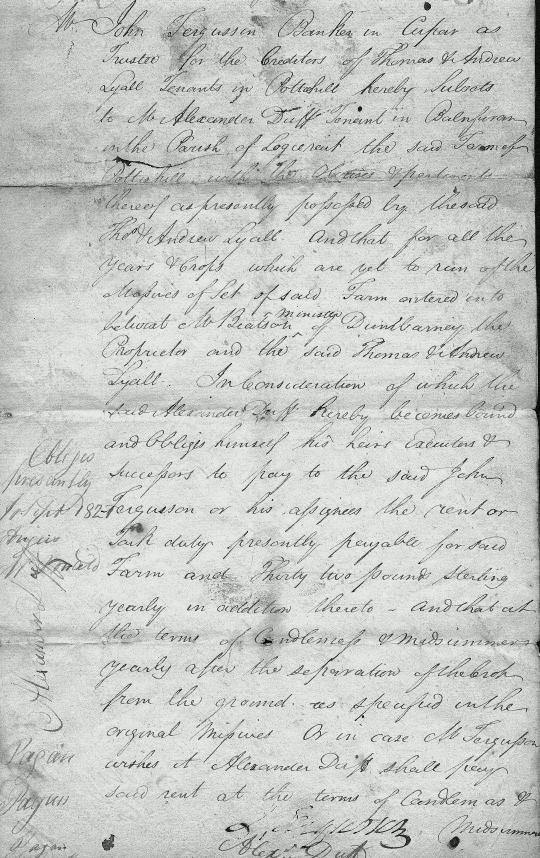 Mr John Fergusson Banker in Cupar as
Trustee for the Creditors of Thomas & Andrew
Lyall Tenants in Pottiehill hereby Sub
to Mr Alexander Duff Tenant in Balnguran
in the Parish of Logierait the said Farm of
Pottiehill with the Houses & pertinents
thereof as presently possessed by the said
Thos & Andrew Lyall. And that for all the
years & Crops which are yet to run of the
Missives of Set of said Farm entered into
betwixt Mr Beatson minister of Dunbarney the
Proprietor and the said Thomas & Andrew
Lyall. In Consideration of which the
said Alexander Duff hereby becomes bound
and Obliges himself his heirs Executors &
successors to pay to the said John
Fergusson or his assignees the rent or
Tack duty presently payable for said
Farm and Thirty two pound Sterling
yearly in addition thereto - And that at
the terms of Candlemass & Midsummer
yearly after the separation of the Crop
from the ground as specified in the
original Missives Or in case Mr Fergusson
wishes it Alexander Duff shall pay
said rent at the terms of Candlemas &
Midsummer
Alexr Duff
Sept 182
Pagan
Pagan
Pagan